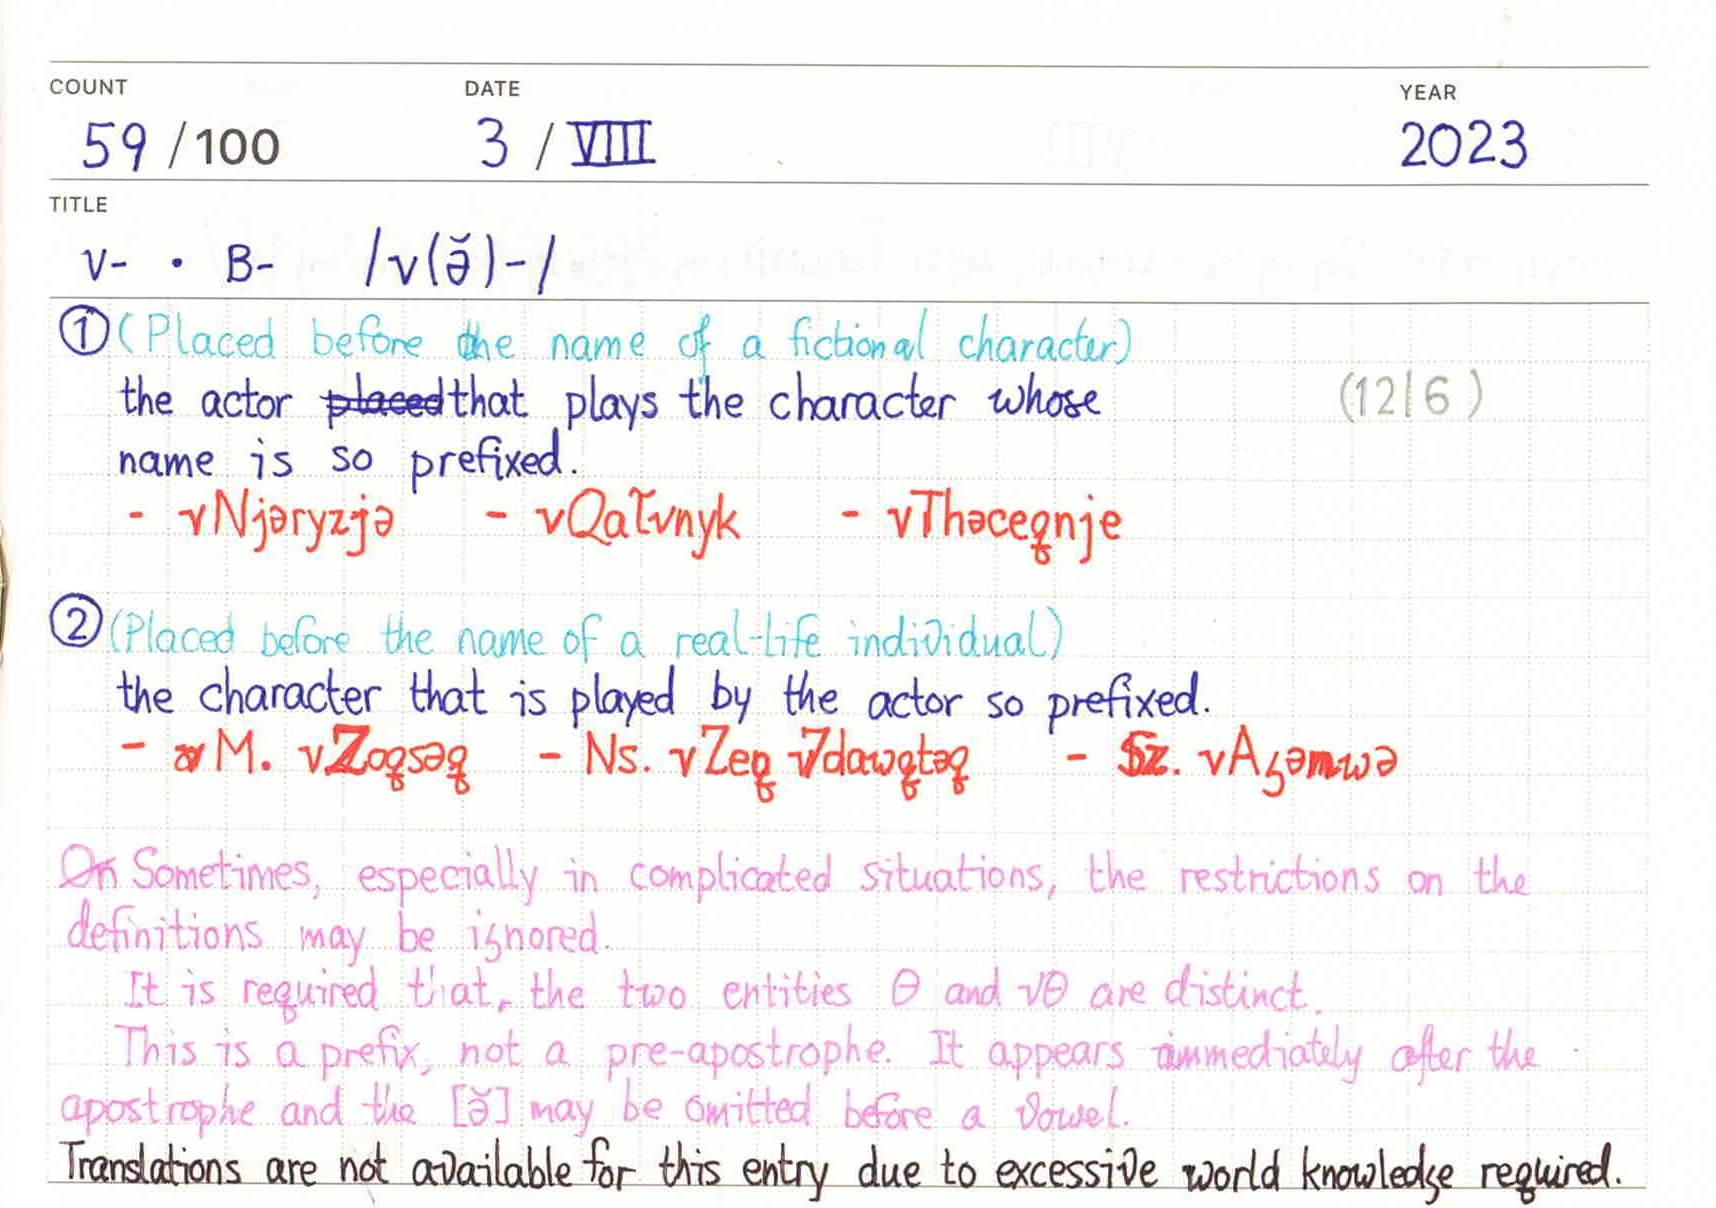 COUNT DATE YEAR
59 /100 3 / VIII 2023
TITLE
v- · B- /v(ə̆)-/
① (Placed before the name of a fictional character)
the actor placed that plays the character whose (12|6)
name is so prefixed.
- vNjəryzjə - vQaľvnyk - vThəceƍnje
② (Placed before the name of a real-life individual)
the character that is played by the actor so prefixed.
- M. vZoƍsəƍ - Ns. vZeƍ - Sz.
On Sometimes, especially in complicated situations, the restrictions on the
definitions may be ignored.
It is required that, the two entities Θ and vΘ are distinct.
This is a prefix, not a pre-apostrophe. It appears immediately after the
apostrophe and the [ə̆] may be omitted before a vowel.
Translations are not available for this entry due to excessive world knowledge required.